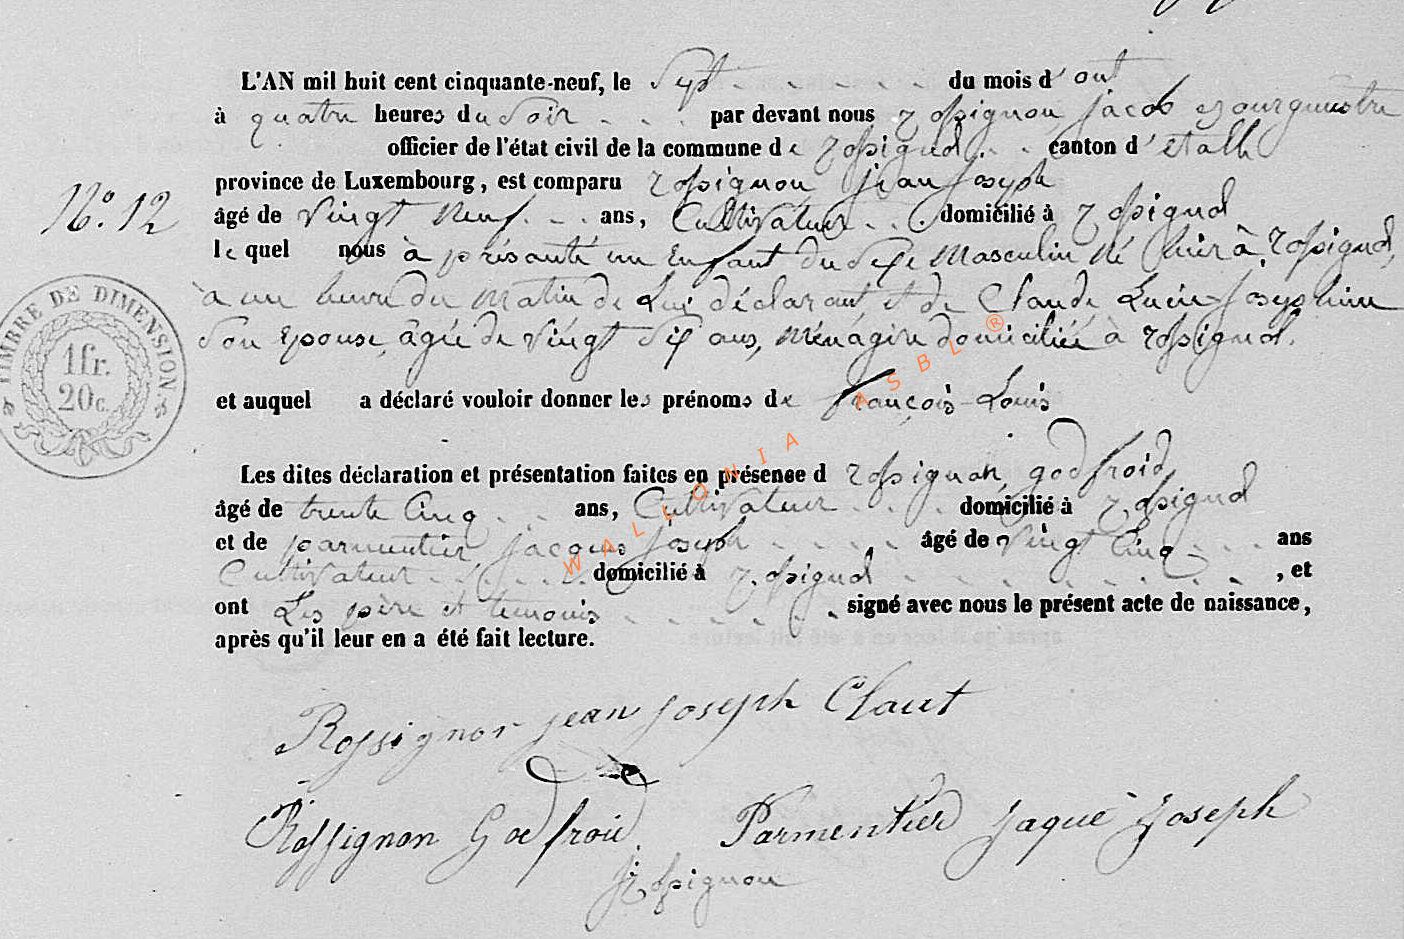 L'AN mil huit cent cinquante-neuf, le Sept du mois d'out
à quatre heures du Soir par devant nous rossignon jacob Bourgmestre
officier de l'état civil de la commune de rossignol canton d'étalle
province de Luxembourg, est comparu rossignon jean joseph
N.° 12
âgé de vingt neuf ans, Cultivateur domicilié à rossignol
lequel nous à présanté un Enfant du Sexe Masculin né hier à rossignol,
à un heure du Matin de Lui déclarant et de Claude Lucie Josephine
Son Epouse, âgée de vingt Six ans, Ménagère domiciliée à rossignol.
TIMBRE DE DIMENSION
1 fr.
20 c.
et auquel a déclaré vouloir donner les prénoms de françois Louis
Les dites déclaration et présentation faites en présense d rossignon godfroid
âgé de trente Cinq ans, Cultivateur domicilié à rossignol
et de parmentier jacques joseph âgé de vingt Cinq ans
Cultivateur domicilié à rossignol, et
ont Les père et temouis signé avec nous le présent acte de naissance,
après qu'il leur en a été fait lecture.
WALLONIA ASBL ®
Rossignon jean joseph Claut
Rossignon Godfroid Parmentier Jaque Joseph
rossignon